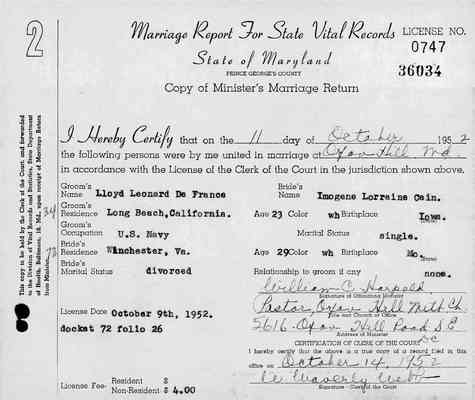 2
Marriage Report For State Vital Records
LICENSE NO.
0747
State of Maryland
36034
PRINCE GEORGE'S COUNTY
Copy of Minister's Marriage Return
This copy to be held by the Clerk of the Court, and forwarded
to the Division of Vital Records and Statistics, State Department
of Health, Baltimore, 18, Md., upon receipt of Marriage Return
from Minister.
I Hereby Certify that on the 11 day of October 1952
the following persons were by me united in marriage at Oxon Hill Md.
in accordance with the License of the Clerk of the Court in the jurisdiction shown above.
Groom's Name Lloyd Leonard De France Bride's Name Imogene Lorraine Cain.
34 Groom's Residence Long Beach, California. Age 23 Color wh Birthplace Iowa.
Groom's Occupation U.S. Navy Marital Status single.
Bride's Residence Winchester, Va. Age 29 Color wh Birthplace Mo.
Bride's Marital Status divorced Relationship to groom if any none.
William C. Harpold
Signature of Officiating Minister
Pastor, Oxon Hill Meth Ch
Title and Church of Office
License Date October 9th, 1952.
5616 Oxon Hill Road S E
Address of Minister
DC
docket 72 folio 26
CERTIFICATION OF CLERK OF THE COURT
I hereby certify that the above is a true copy of a record filed in this
office on October 14, 1952
W. Waverly Webb
Signature - Clerk of the Court
License Fee- Resident $
Non-Resident $ 4.00